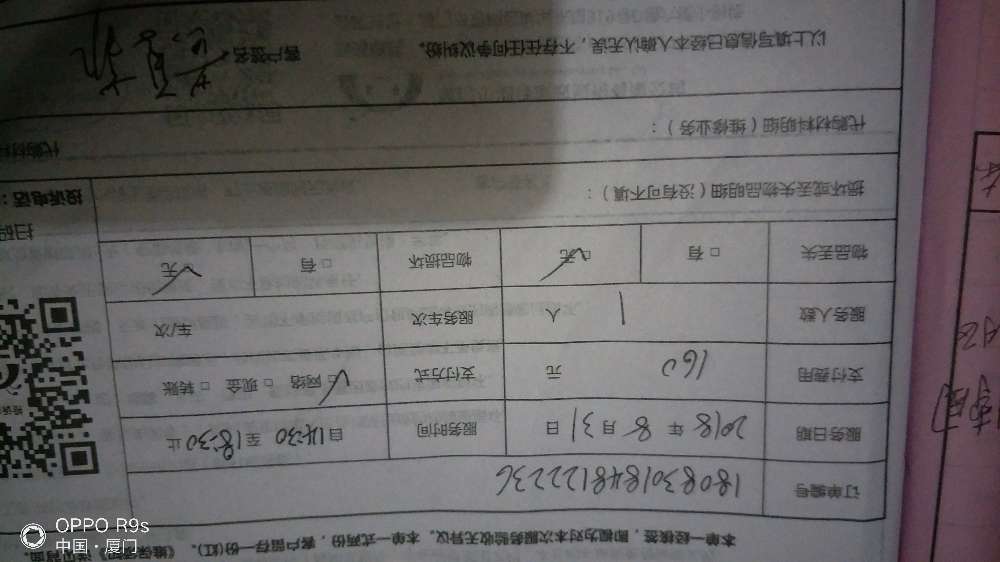 本单一经核签，即视为对本次服务验收无异议。本单一式两份，客户留存一份(红)。
订单编号 180830184812236
服务日期 2018 年 8 月 31 日 服务时间 自 14:30 至 18:30 止
支付费用 160 元 支付方式 ☑ 网络 □ 现金 □ 转账
服务人数 1 人 服务车次 车/次
物品丢失 □ 有 ☑ 无 物品损坏 □ 有 ☑ 无
损坏或丢失物品明细（没有可不填）：
代购材料明细（维修业务）：
以上填写信息已经本人确认无误，不存在任何争议纠纷。 客户签名
扫码
投诉电话：
代购材料
OPPO R9s
中国·厦门